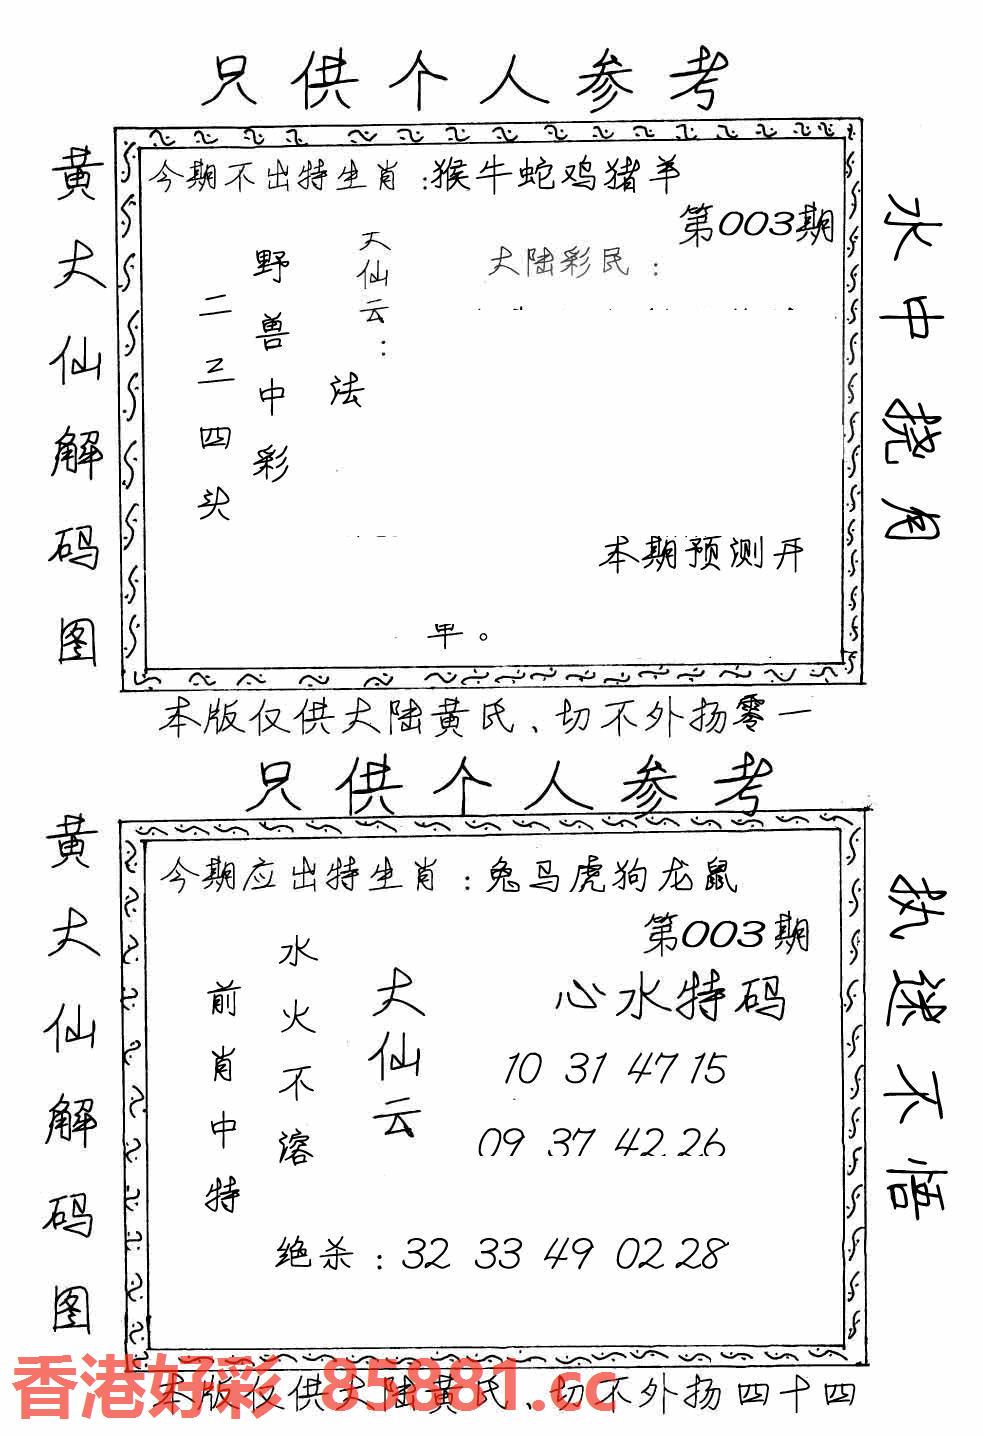 只供个人参考
黄大仙解码图
今期不出特生肖：猴牛蛇鸡猪羊
第003期
大陆彩民：
天仙云：
法
野兽中彩
二三四头
本期预测开
单。
水中捞月
本版仅供大陆黄氏、切不外扬零一
只供个人参考
黄大仙解码图
今期应出特生肖：兔马虎狗龙鼠
第003期
心水特码
10 31 47 15
09 37 42 26
大仙云
水火不溶
前肖中特
绝杀：32 33 49 02 28
执迷不悟
本版仅供大陆黄氏、切不外扬四十四
香港好彩 85881.cc